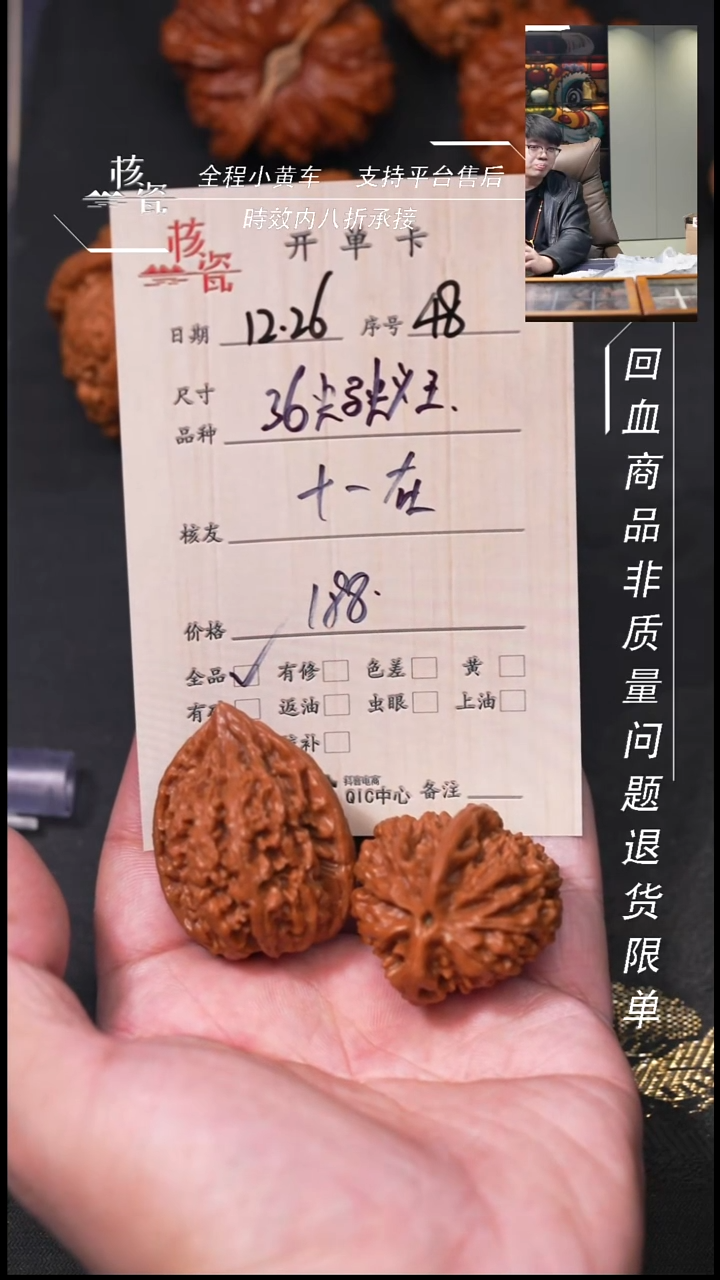 核瓷
全程小黄车 支持平台售后
時效内八折承接
核瓷
开单卡
日期 12.26 序号 48
尺寸
品种 36
核友 十一在
价格 188.
全品 ✓ 有修 色差 黄
有 返油 虫眼 上油
补
抖音电商
QIC中心 备注
回血商品非质量问题退货限单